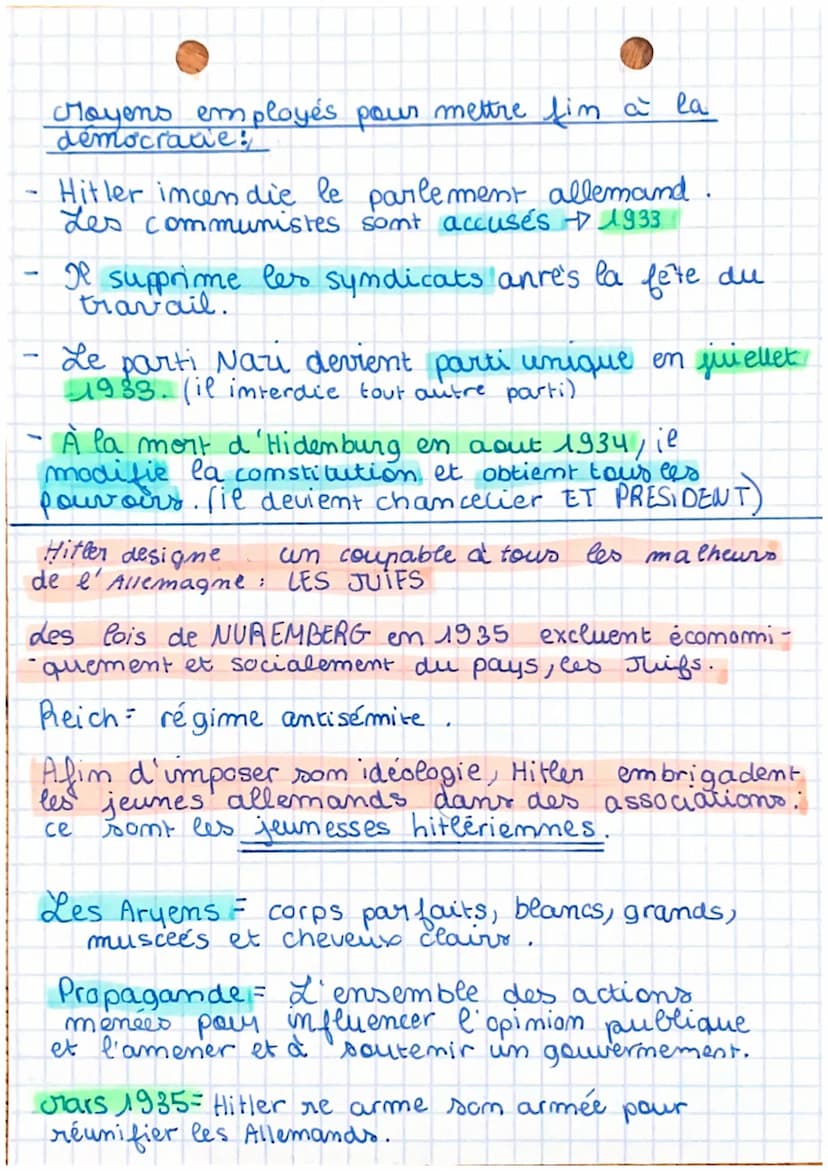 Moyens employés pour mettre fin à la
démocratie :
- Hitler incendie le parlement allemand.
Les communistes sont accusés → 1933
- Il supprime les syndicats anrés la fête du
travail.
- Le parti Nazi devient parti unique en juiellet
1933. (il interdie tout autre parti)
- À la mort d'Hidenburg en aout 1934, il
modifie la constitution et obtient tous les
pouvoirs. (il devient chancelier ET PRESIDENT)
Hitler designe un coupable à tous les malheurs
de l'Allemagne : LES JUIFS
Les lois de NUREMBERG en 1935 excluent économi-
-quement et socialement du pays, les Juifs.
Reich = régime antisémite.
Afin d'imposer son idéologie, Hitler embrigadent
les jeunes allemands dans des associations :
ce sont les jeunesses hitlériennes.
Les Aryens = corps parfaits, blancs, grands,
musclés et cheveux clairs.
Propagande = L'ensemble des actions
menées pour influencer l'opinion publique
et l'amener et à soutenir un gouvernement.
Mars 1935 = Hitler re arme son armée pour
réunifier les Allemands.